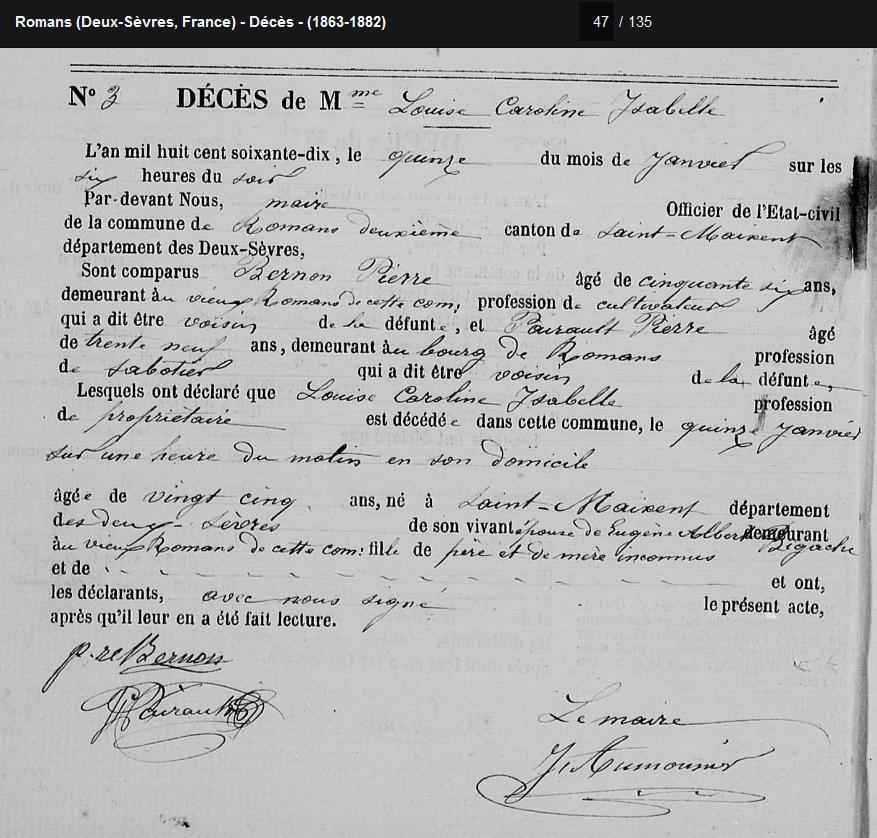 Romans (Deux-Sèvres, France) - Décès - (1863-1882)
47 / 135
N° 3 DÉCÈS de Mme Louise Caroline Isabelle
L'an mil huit cent soixante-dix, le quinze du mois de Janvier sur les
six heures du soir
Par-devant Nous, maire Officier de l'Etat-civil
de la commune de Romans deuxième canton de Saint-Maixent
département des Deux-Sèvres,
Sont comparus Bernon Pierre âgé de cinquante six ans,
demeurant au vieux Romans de cette com, profession de cultivateur
qui a dit être voisin de la défunte, et Pairault Pierre âgé
de trente neuf ans, demeurant au bourg de Romans profession
de sabotier qui a dit être voisin de la défunte,
Lesquels ont déclaré que Louise Caroline Isabelle profession
de propriétaire est décédée dans cette commune, le quinze Janvier
sur une heure du matin en son domicile
âgée de vingt cinq ans, né à Saint-Maixent département
des deux-Sèvres de son vivant épouse de Eugène Albert demeurant
au vieux Romans de cette com: fille de père et de mère inconnus
et de et ont,
les déclarants, avec nous signé le présent acte,
après qu'il leur en a été fait lecture.
p.re Bernon
Pairault
Le maire